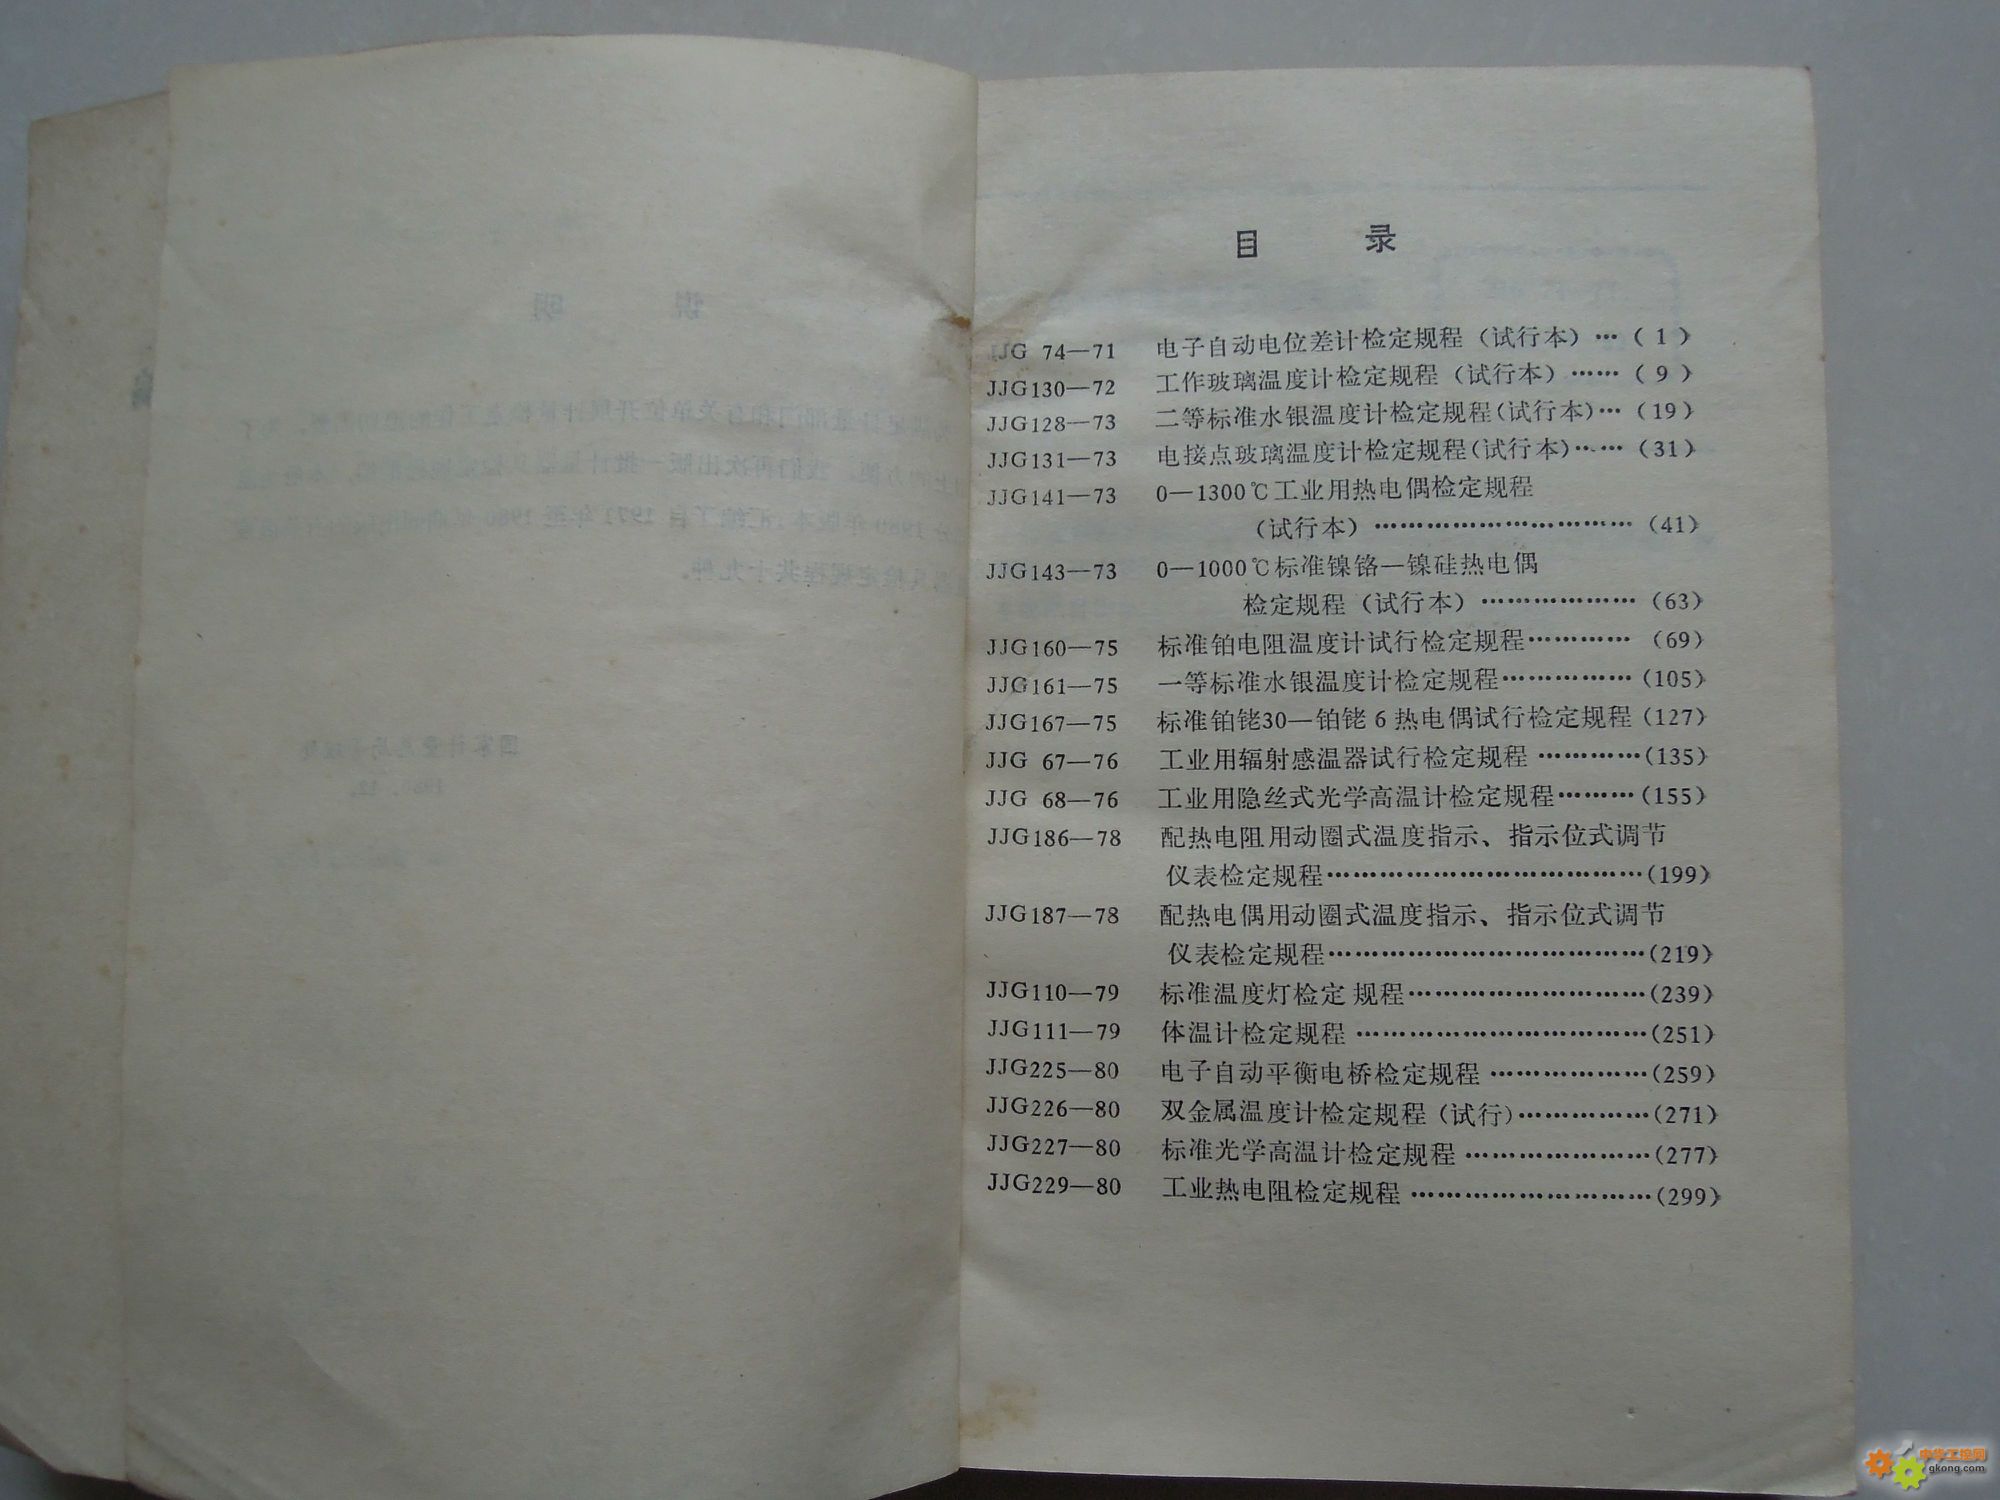 目 录
JJG 74—71 电子自动电位差计检定规程（试行本）…（1）
JJG130—72 工作玻璃温度计检定规程（试行本）……（9）
JJG128—73 二等标准水银温度计检定规程(试行本)…（19）
JJG131—73 电接点玻璃温度计检定规程(试行本)……（31）
JJG141—73 0—1300℃工业用热电偶检定规程
（试行本）…………………………（41）
JJG143—73 0—1000℃标准镍铬—镍硅热电偶
检定规程（试行本）………………（63）
JJG160—75 标准铂电阻温度计试行检定规程…………（69）
JJG161—75 一等标准水银温度计检定规程……………（105）
JJG167—75 标准铂铑30—铂铑6热电偶试行检定规程（127）
JJG 67—76 工业用辐射感温器试行检定规程…………（135）
JJG 68—76 工业用隐丝式光学高温计检定规程………（155）
JJG186—78 配热电阻用动圈式温度指示、指示位式调节
仪表检定规程………………………………（199）
JJG187—78 配热电偶用动圈式温度指示、指示位式调节
仪表检定规程………………………………（219）
JJG110—79 标准温度灯检定规程………………………（239）
JJG111—79 体温计检定规程……………………………（251）
JJG225—80 电子自动平衡电桥检定规程………………（259）
JJG226—80 双金属温度计检定规程（试行）……………（271）
JJG227—80 标准光学高温计检定规程…………………（277）
JJG229—80 工业热电阻检定规程………………………（299）
中华工控网
gkong.com